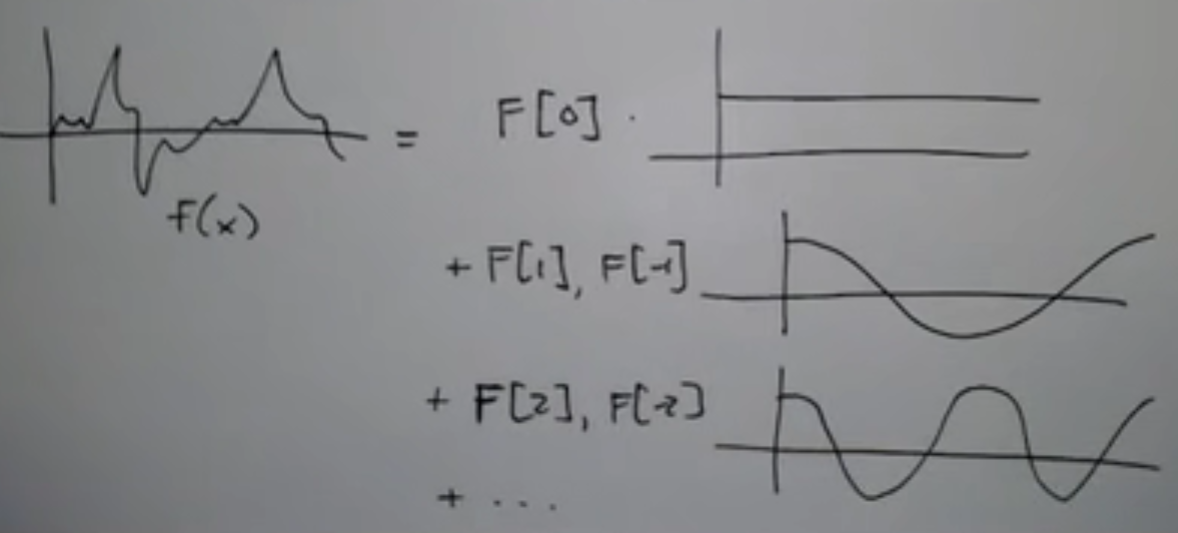 = F[0] ·
f(x)
+ F[1], F[-1]
+ F[2], F[-2]
+ ...